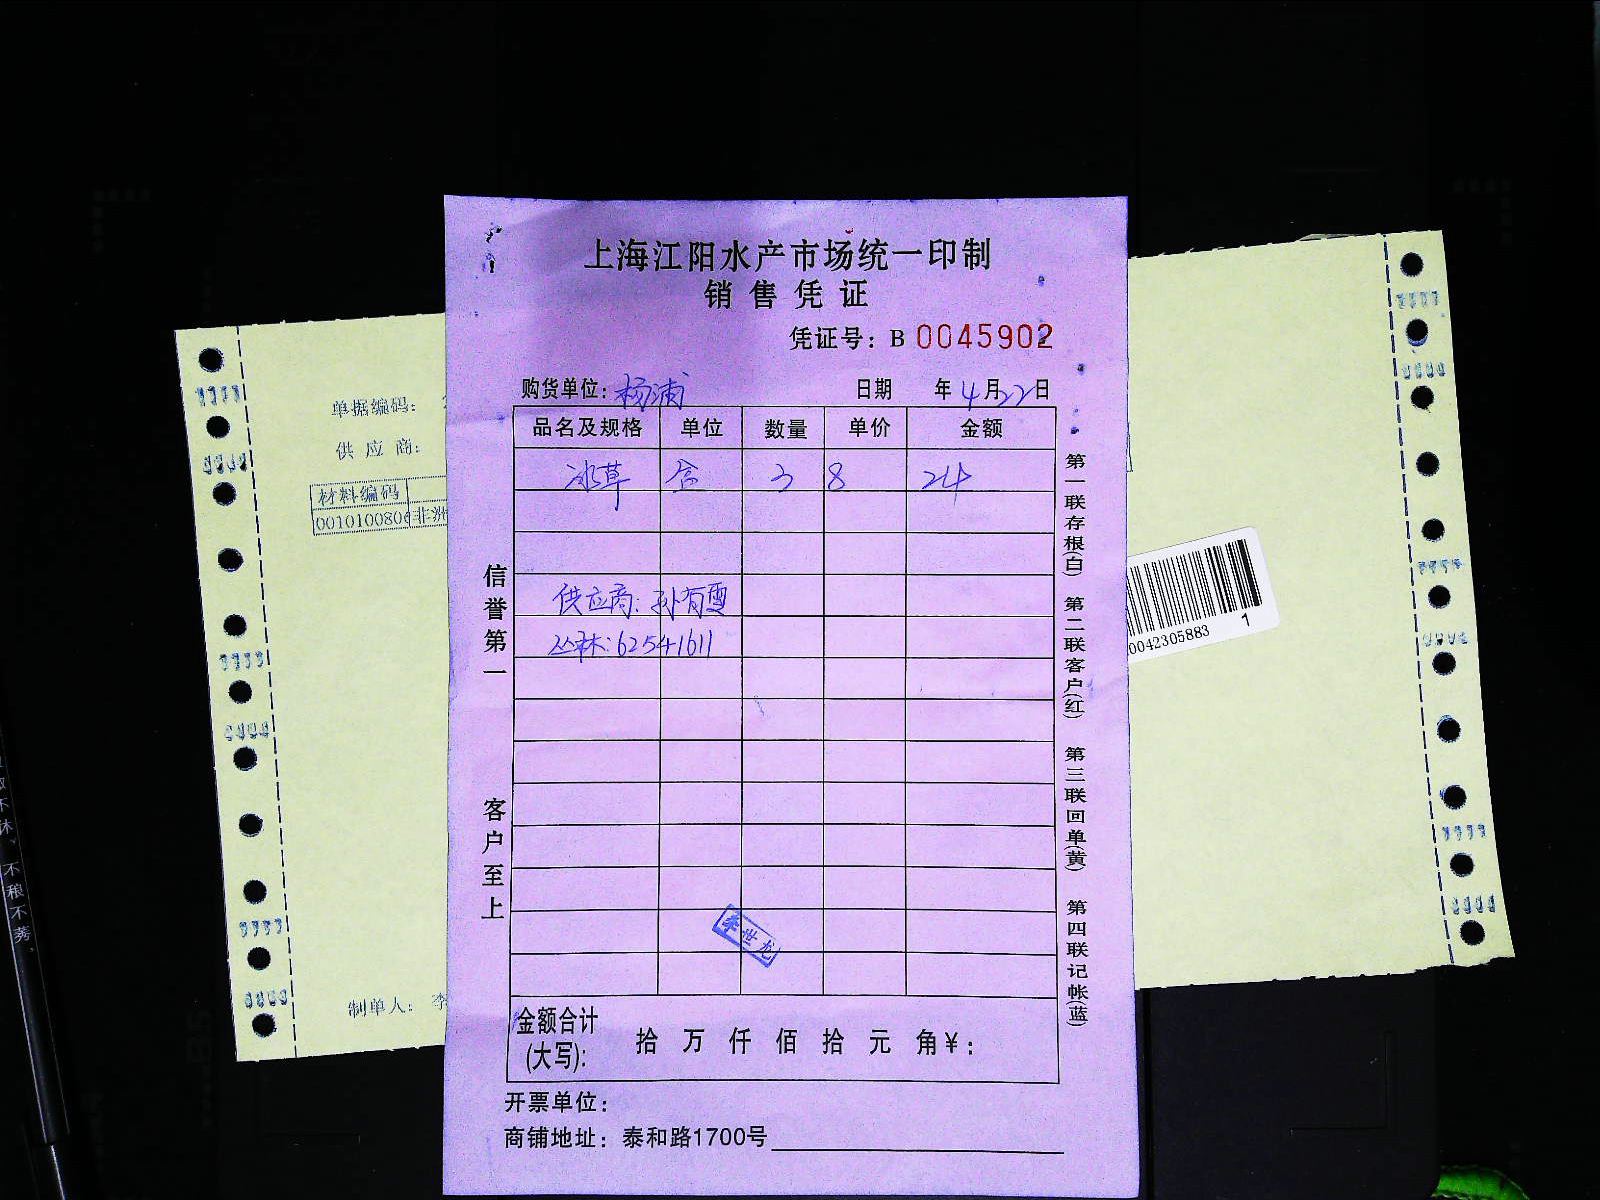 上海江阳水产市场统一印制
销售凭证
凭证号：B 0045902
购货单位：杨浦 日期 年4月22日
品名及规格 单位 数量 单价 金额
冰草 合 3 8 24
供应商：孙有雯
丛林：62541611
金额合计
(大写)： 拾 万 仟 佰 拾 元 角¥：
开票单位：
商铺地址：泰和路1700号
信誉第一
客户至上
第一联存根(白) 第二联客户(红) 第三联回单(黄) 第四联记帐(蓝)
李世龙
单据编码：
供应商：
材料编码
0010100806 非洲
制单人：李
0042305883 1
不稂不莠、